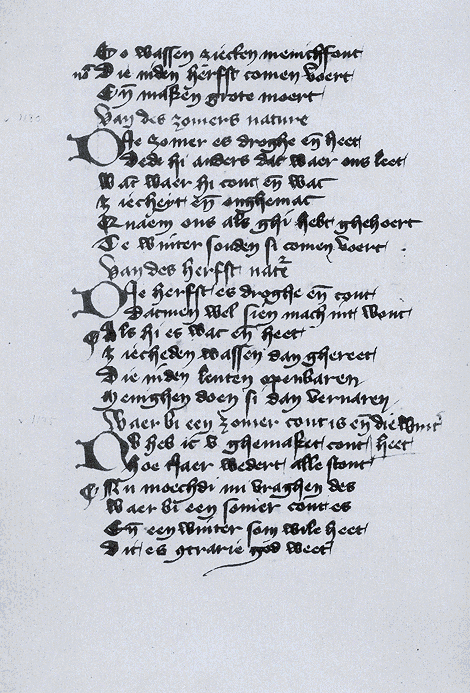 So wassen ziecken menichfout
Die inden herfst comen voert
Eñ maken grote moert
Van des zomers nature
Die zomer es droghe eñ heet
Dede hi anders dat waer ons leet
Wāt waer hi cout eñ wac
Ziecheit eñ onghemac
Quaem ons als ghi hebt ghehoert
Te winter souden si comen voert
Van des herfst nat
Die herfst es droghe eñ cout
Datmen wel sien mach int wout
Als hi es wac eñ heet
Ziecheden wassen dan ghereet
Die inden lenten openbaren
Menighen doen si dan vernaren
Waer bi een zomer cout is eñ die wint
Nv hebic v ghemaket cont heet
Hoe tiaer wedert alle stont
Nu moechdi mi vraghen des
Waer bi een somer cout es
Eñ een winter som wile heet
Dit es 9trarie god weet